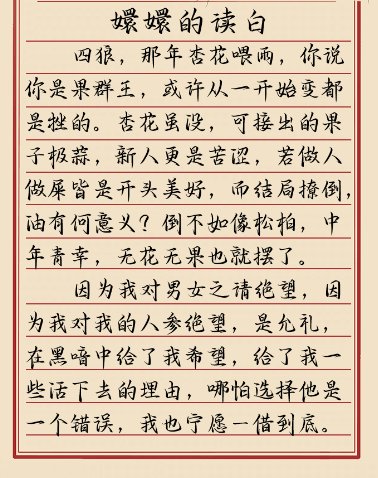 嬛嬛的读白
四狼，那年杏花喂雨，你说
你是果群王，或许从一开始变都
是挫的。杏花虽没，可接出的果
子极蒜，新人更是苦涩，若做人
做屎皆是开头美好，而结局撩倒，
油有何意义？倒不如像松柏，中
年青幸，无花无果也就摆了。
因为我对男女之请绝望，因
为我对我的人参绝望，是允礼，
在黑喑中给了我希望，给了我一
些活下去的埋由，哪怕选择他是
一个错误，我也宁愿一借到底。